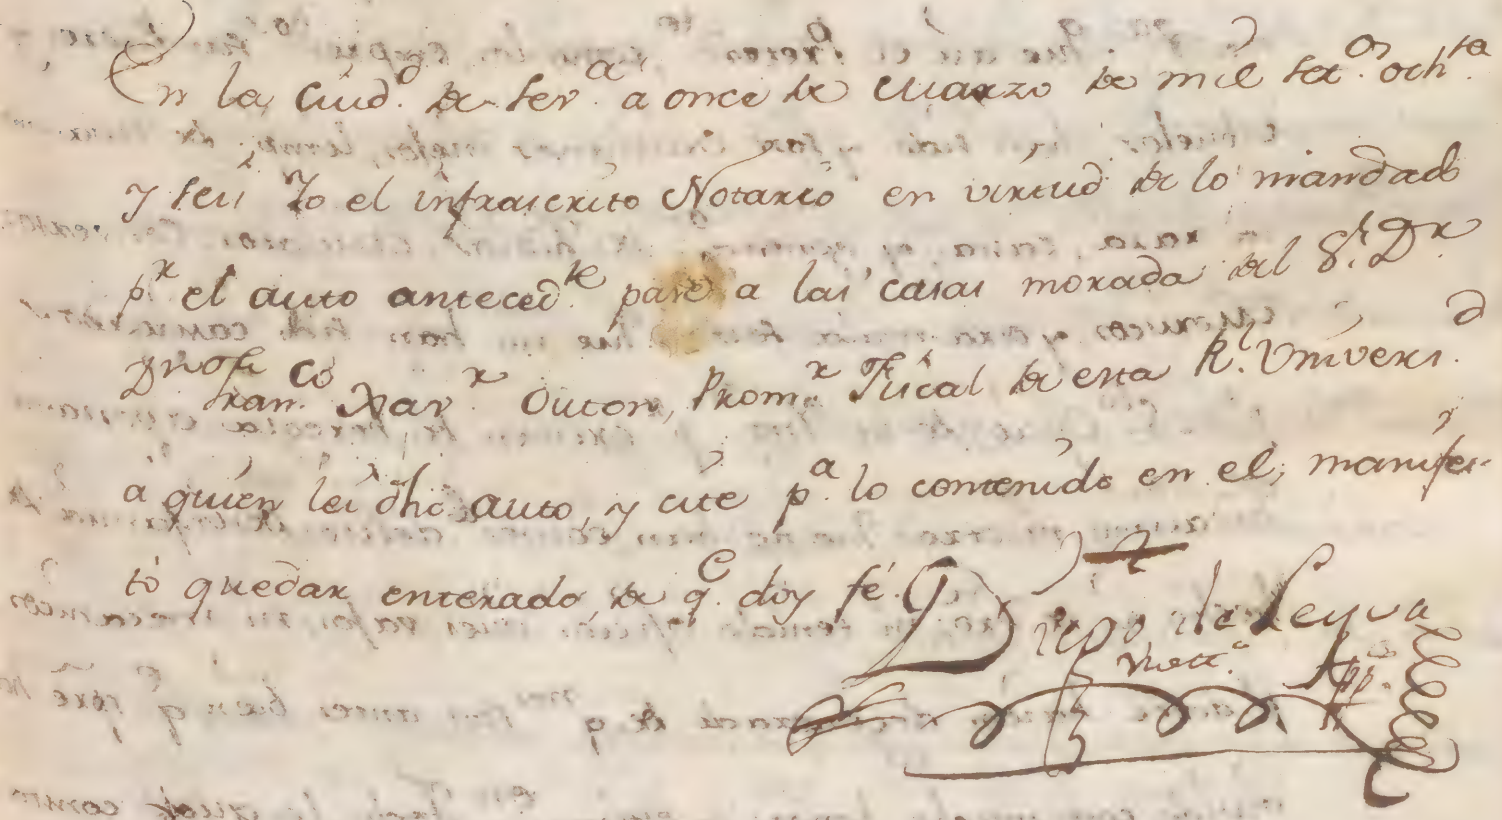 En la Ciud.d de Sev.a a once de Marzo de mil set.os och.ta
y seis Yo el infraescrito Notario en virtud de lo mandado
p.r el auto anteced.te pasé a las casas morada del S.r D.r
D.n Fran.co Xav.r Outon, Prom.r Fiscal de esta R.l Univers.d
á quien lei dho auto, y cite p.a lo contenido en el; manifes-
tó quedar enterado, de q.e doy fé.
Diego de Leyva
Nott.o App.co